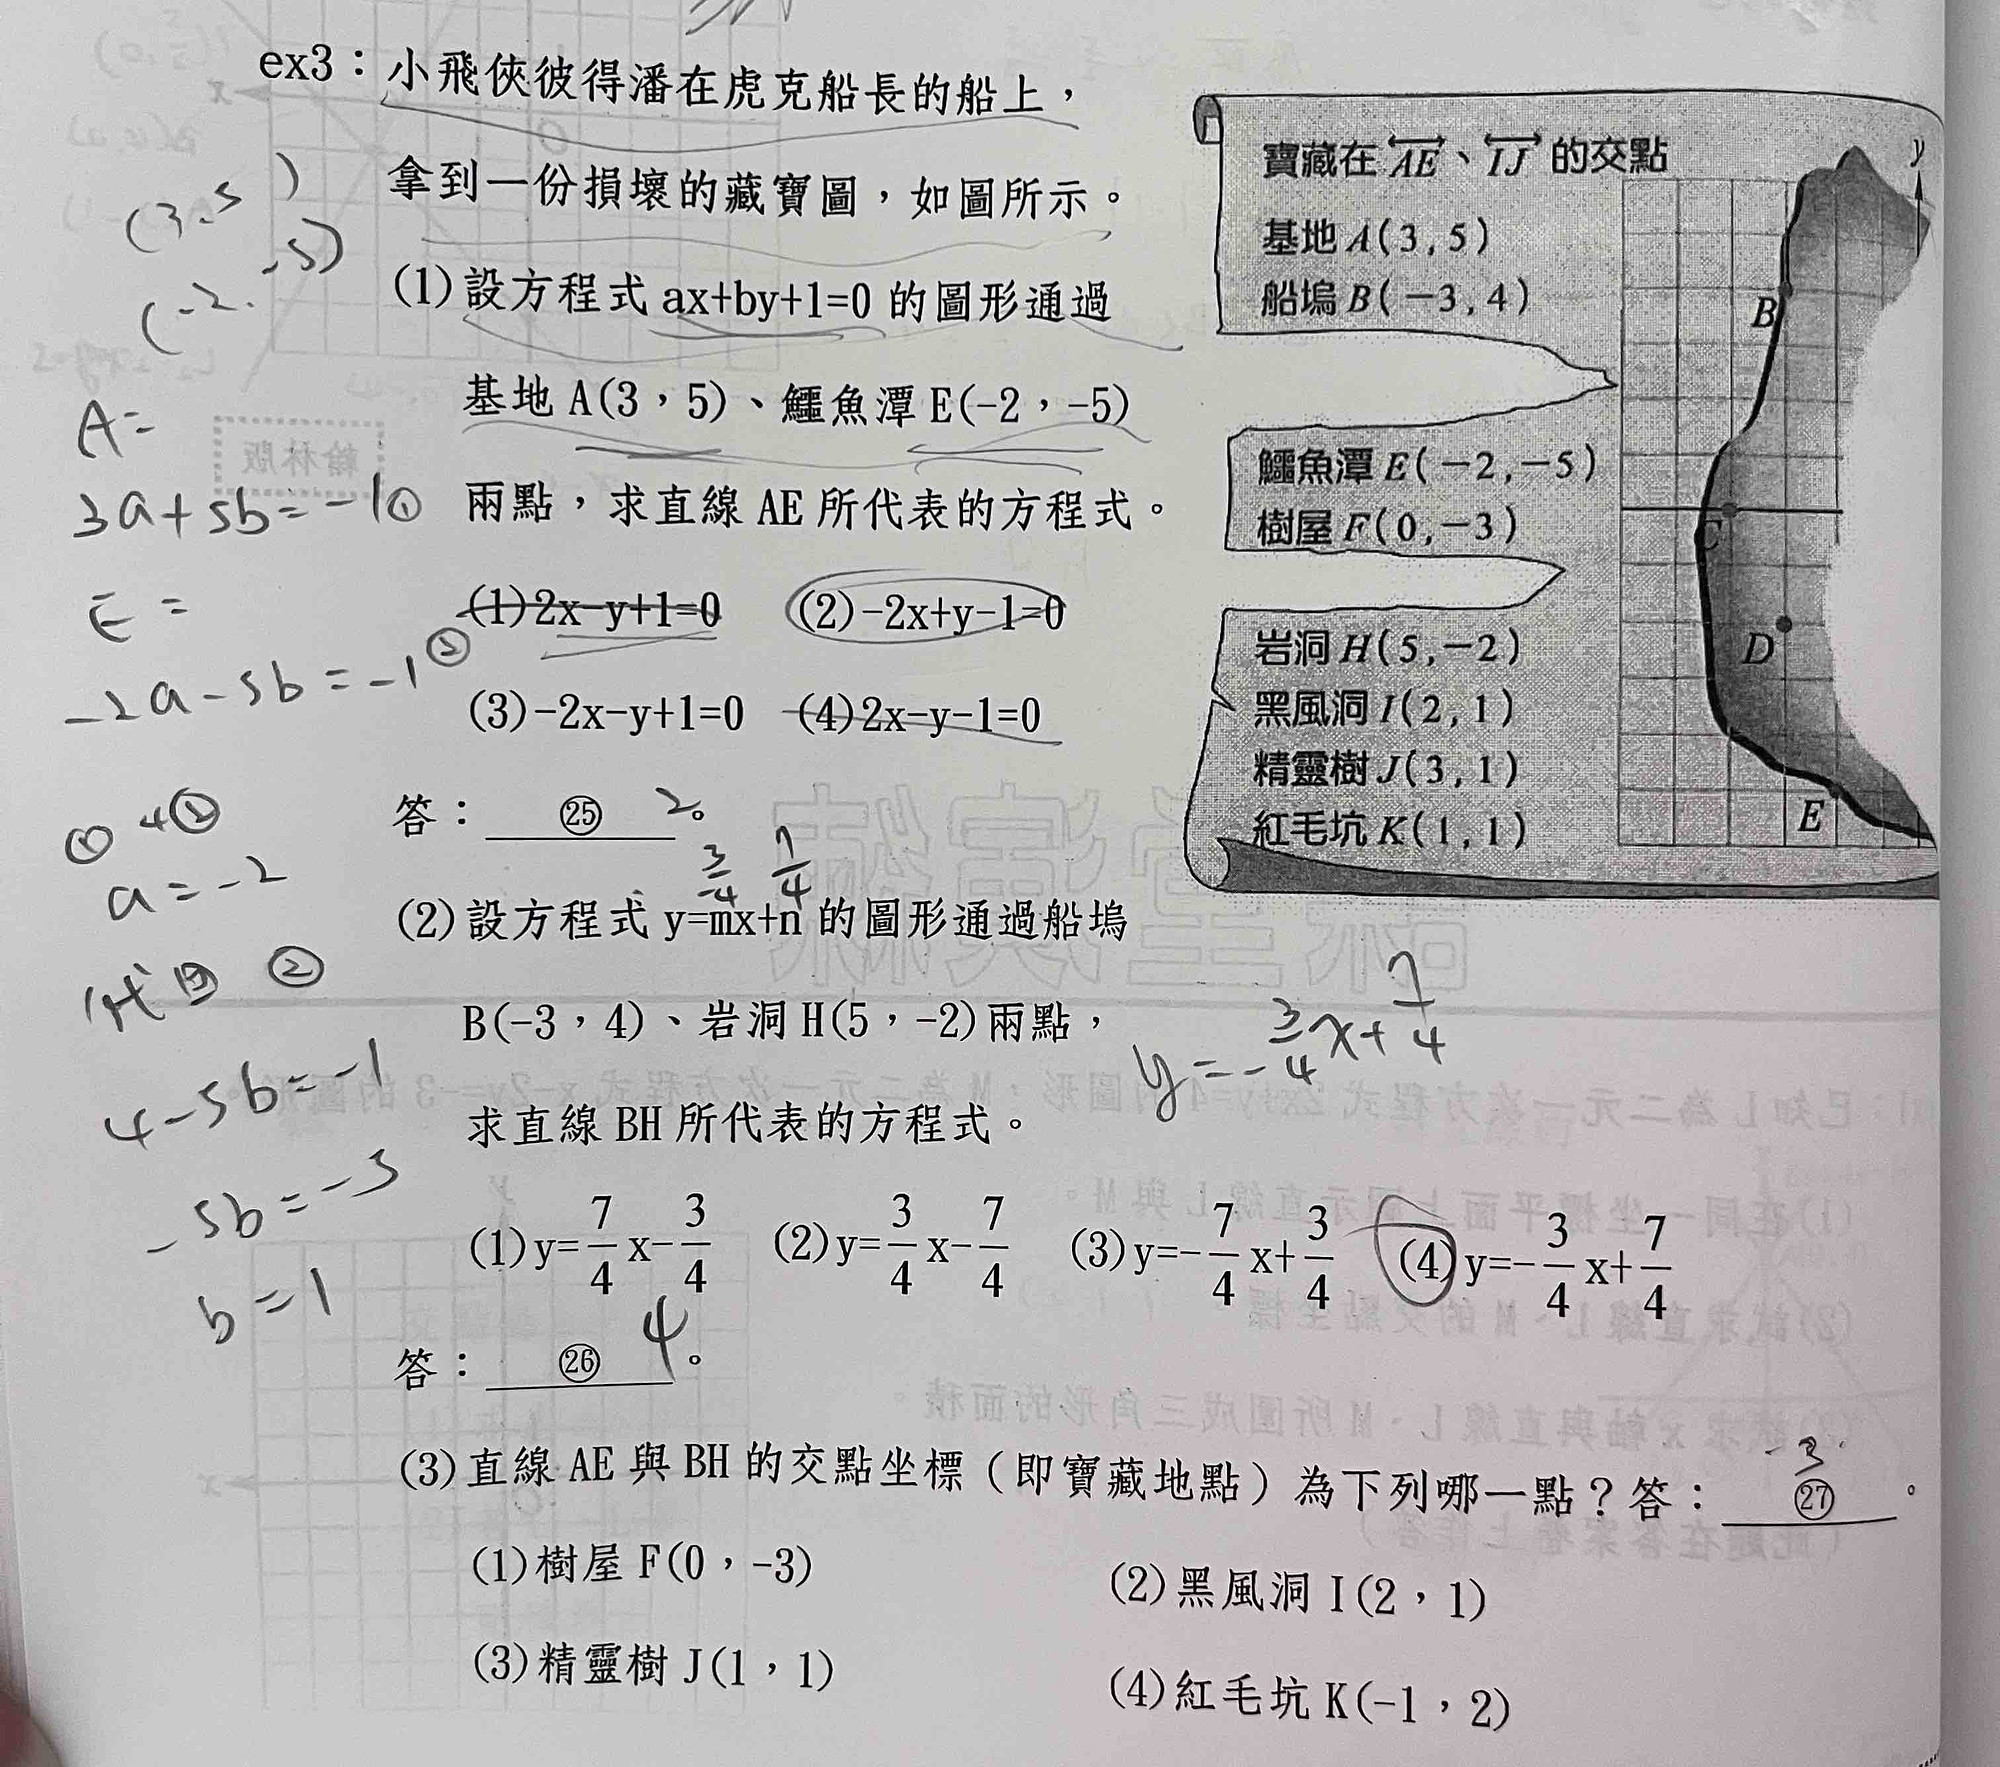 ex3：小飛俠彼得潘在虎克船長的船上，
拿到一份損壞的藏寶圖，如圖所示。
(1)設方程式 ax+by+1=0 的圖形通過
基地 A(3，5)、鱷魚潭 E(-2，-5)
兩點，求直線 AE 所代表的方程式。
(1)2x-y+1=0 (2)-2x+y-1=0
(3)-2x-y+1=0 (4)2x-y-1=0
答：㉕ 2。
(2)設方程式 y=mx+n 的圖形通過船塢
B(-3，4)、岩洞 H(5，-2)兩點，
求直線 BH 所代表的方程式。
(1)y=7/4x-3/4 (2)y=3/4x-7/4 (3)y=-7/4x+3/4 (4)y=-3/4x+7/4
答：㉖ 4。
(3)直線 AE 與 BH 的交點坐標（即寶藏地點）為下列哪一點？答：㉗ 3。
(1)樹屋 F(0，-3) (2)黑風洞 I(2，1)
(3)精靈樹 J(1，1) (4)紅毛坑 K(-1，2)
寶藏在 AE、IJ 的交點
基地 A(3,5)
船塢 B(-3,4)
鱷魚潭 E(-2,-5)
樹屋 F(0,-3)
岩洞 H(5,-2)
黑風洞 I(2,1)
精靈樹 J(3,1)
紅毛坑 K(1,1)
y
B
C
D
E
(3,5)
(-2,-5)
A=
3a+5b=-1①
E=
-2a-5b=-1②
①+②
a=-2
代回 ②
4-5b=-1
-5b=-5
b=1
3/4 7/4
y=-3/4x+7/4